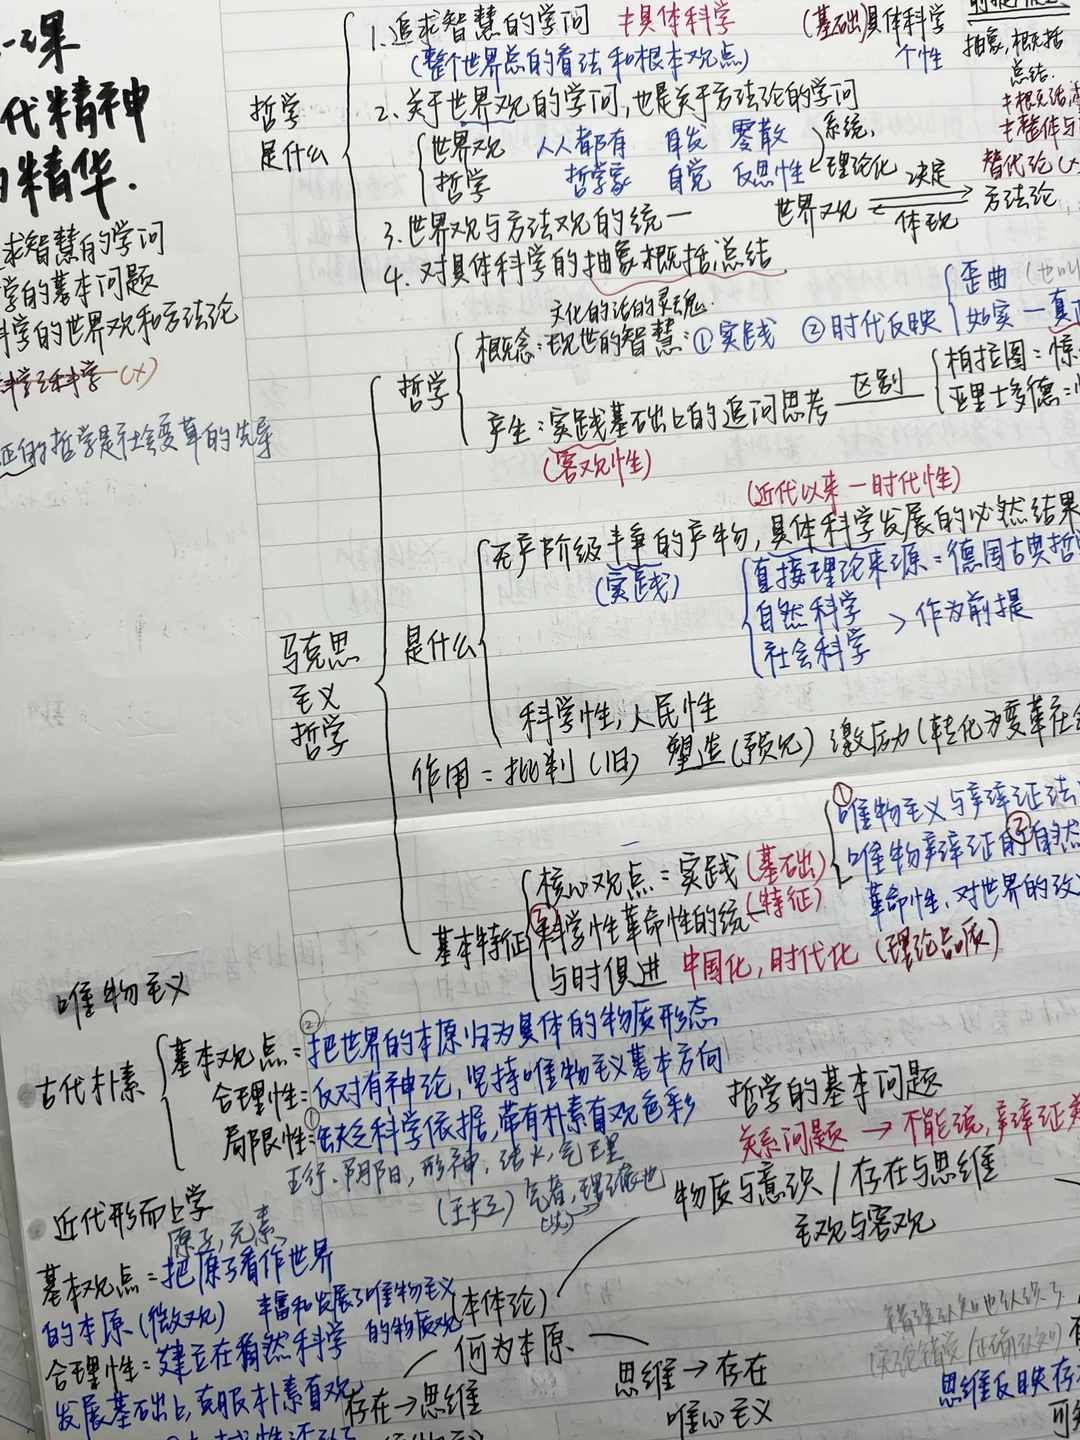 一课
代精神
精华.
求智慧的学问
学的基本问题
科学的世界观和方法论
科学之科学 (×)
的哲学是社会变革的先导
哲学是什么
1.追求智慧的学问 ≠具体科学 (基础)具体科学
(整个世界总的看法和根本观点) 个性
抽象,概括
总结.
≠概括
≠整体与
替代论(×
2.关于世界观的学问,也是关于方法论的学问
世界观 人人都有 自发 零散
哲学 哲学家 自觉 反思性
系统,
理论化
3.世界观与方法观的统一
世界观 决定 方法论
体现
4.对具体科学的抽象概括总结
马克思主义哲学
哲学
文化的活的灵魂
概念:现世的智慧:①实践 ②时代反映
歪曲
如实一真正
产生:实践基础上的追问思考 区别
(客观性)
柏拉图:惊
亚里士多德:
(近代以来一时代性)
是什么
无产阶级斗争的产物,具体科学发展的必然结果
(实践)
直接理论来源=德国古典哲
自然科学
社会科学 > 作为前提
科学性,人民性
作用=批判(旧) 塑造(预见) 激励(转化为变革社会
基本特征
核心观点=实践(基础)
③科学性革命性的统一(特征)
与时俱进 中国化,时代化(理论品质)
①唯物主义与辩证法
唯物辩证的②自然
革命性,对世界的改
唯物主义
古代朴素
基本观点=②把世界的本原归为具体的物质形态
合理性:反对有神论,坚持唯物主义基本方向
局限性:①缺乏科学依据,带有朴素直观色彩
五行,阴阳,形神,活火,气理
(王夫之)气者,理之依也
近代形而上学
原子,元素
基本观点=把原子看作世界
的本原(微观) 丰富和发展了唯物主义
的物质观
合理性=建立在自然科学
发展基础上,克服朴素直观
哲学的基本问题
关系问题 → 不能说,辩证关
物质与意识/存在与思维
主观与客观
(本体论)
何为本原
存在→思维
思维→存在
唯心主义
思维反映存